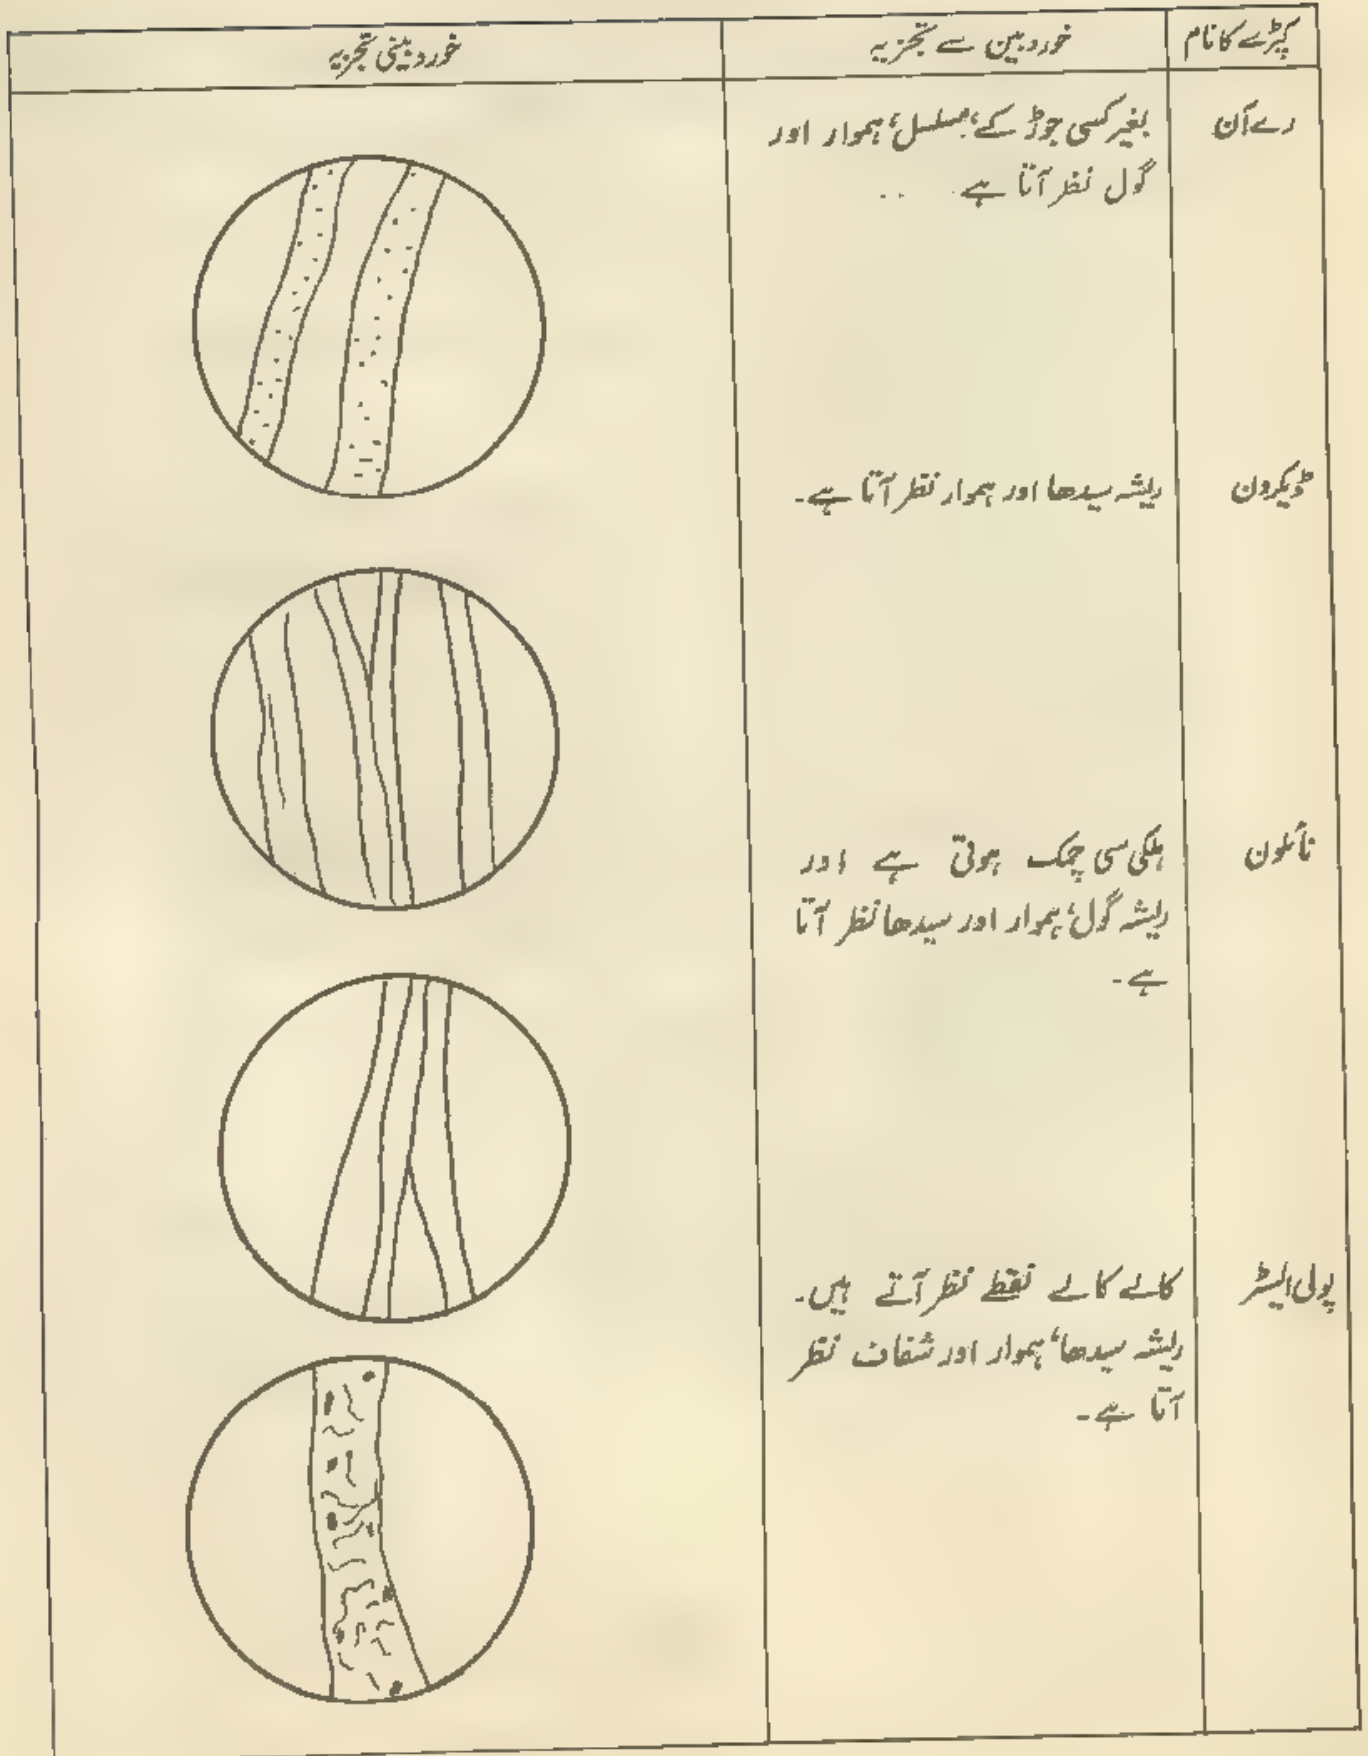 کپڑے کا نام
خوردبین سے تجزیہ
خوردبینی تجزیہ
رے آن
بغیر کسی جوڑ کے، مسلسل، ہموار اور
گول نظر آتا ہے
ڈیکرون
ریشہ سیدھا اور ہموار نظر آتا ہے۔
نائلون
ہلکی سی چمک ہوتی ہے اور
ریشہ گول، ہموار اور سیدھا نظر آتا
ہے۔
پولی ایسٹر
کالے کالے نقطے نظر آتے ہیں۔
ریشہ سیدھا، ہموار اور شفاف نظر
آتا ہے۔